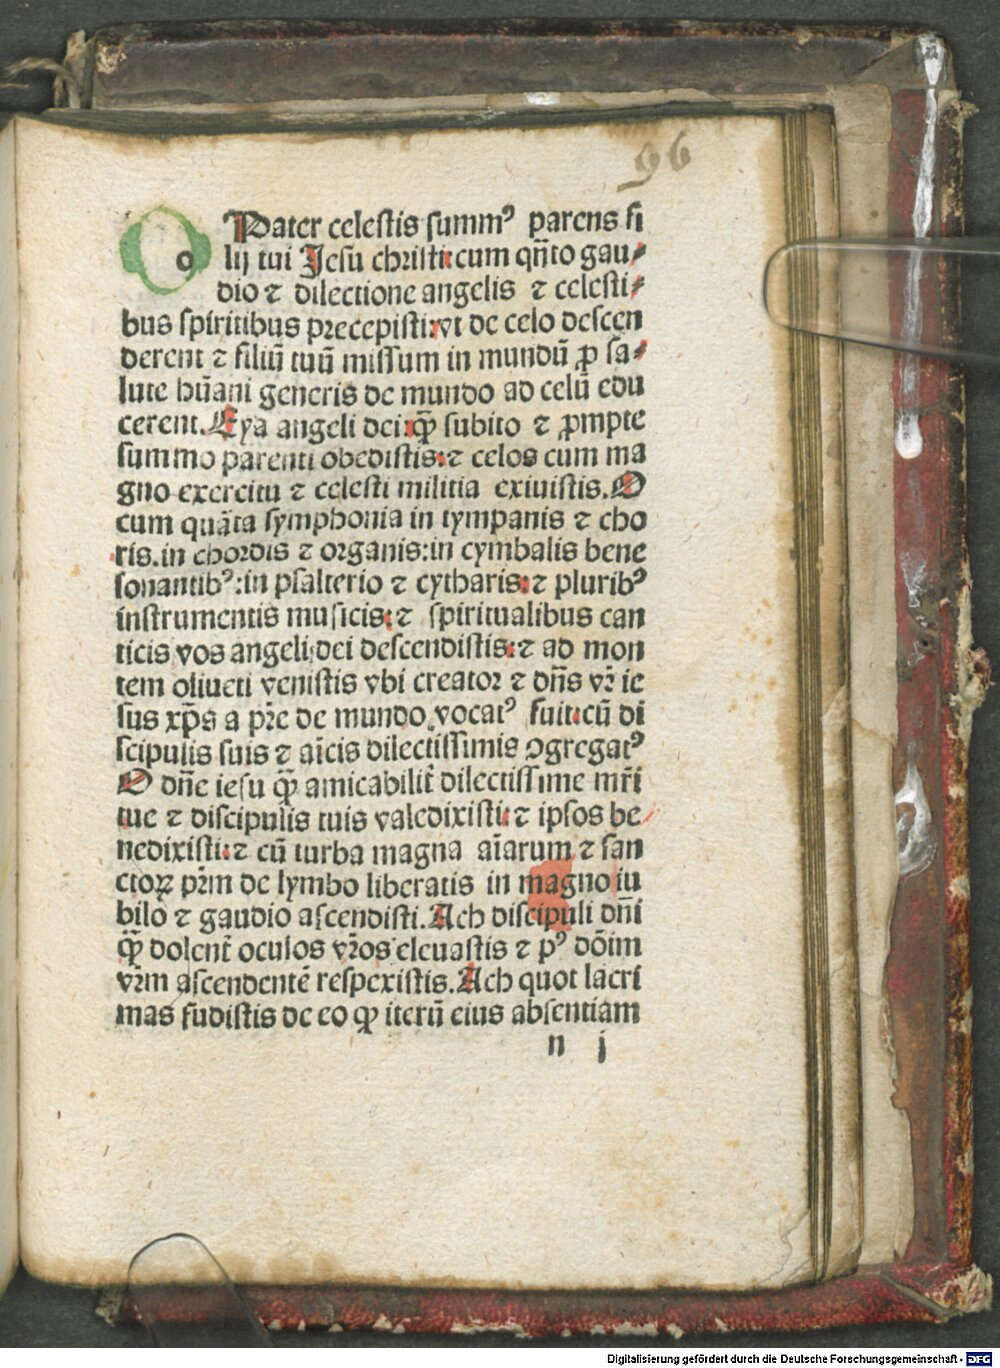 96
O Pater celestis summꝰ parens fi
o lij tui Jesū christi: cum qn̄to gau⸗
dio ⁊ dilectione angelis ⁊ celesti⸗
bus spiritibus precepisti: vt de celo descen
derent ⁊ filiū tuū missum in mundū ꝓ sa⸗
lute hūani generis de mundo ad celū edu
cerent. Eya angeli dei: ꝙ̄ subito ⁊ ꝓmpte
summo parenti obedistis: ⁊ celos cum ma
gno exercitu ⁊ celesti militia exiuistis. O
cum quāta symphonia in tympanis ⁊ cho
ris. in chordis ⁊ organis: in cymbalis bene
sonantibꝰ: in psalterio ⁊ cytharis: ⁊ pluribꝰ
instrumentis musicis: ⁊ spiritualibus can
ticis vos angeli dei descendistis: ⁊ ad mon
tem oliueti venistis vbi creator ⁊ dn̄s vr̄ ie
sus xp̄s a pr̄e de mundo vocatꝰ fuit: cū di
scipulis suis ⁊ aīcis dilectissimis ꝯgregatꝰ
O dn̄e iesu ꝙ̄ amicabilit̄ dilectissime mr̄i
tue ⁊ discipulis tuis valedixisti: ⁊ ipsos be
nedixisti: ⁊ cū turba magna aīarum ⁊ san
ctoꝝ pr̄m de lymbo liberatis in magno iu
bilo ⁊ gaudio ascendisti. Ach discipuli dn̄i
ꝙ̄ dolent̄ oculos vr̄os eleuastis ⁊ pꝰ dōim
vr̄m ascendentē respexistis. Ach quot lacri
mas fudistis de eo ꝙ iterū eius absentiam
n j
Digitalisierung gefördert durch die Deutsche Forschungsgemeinschaft - DFG